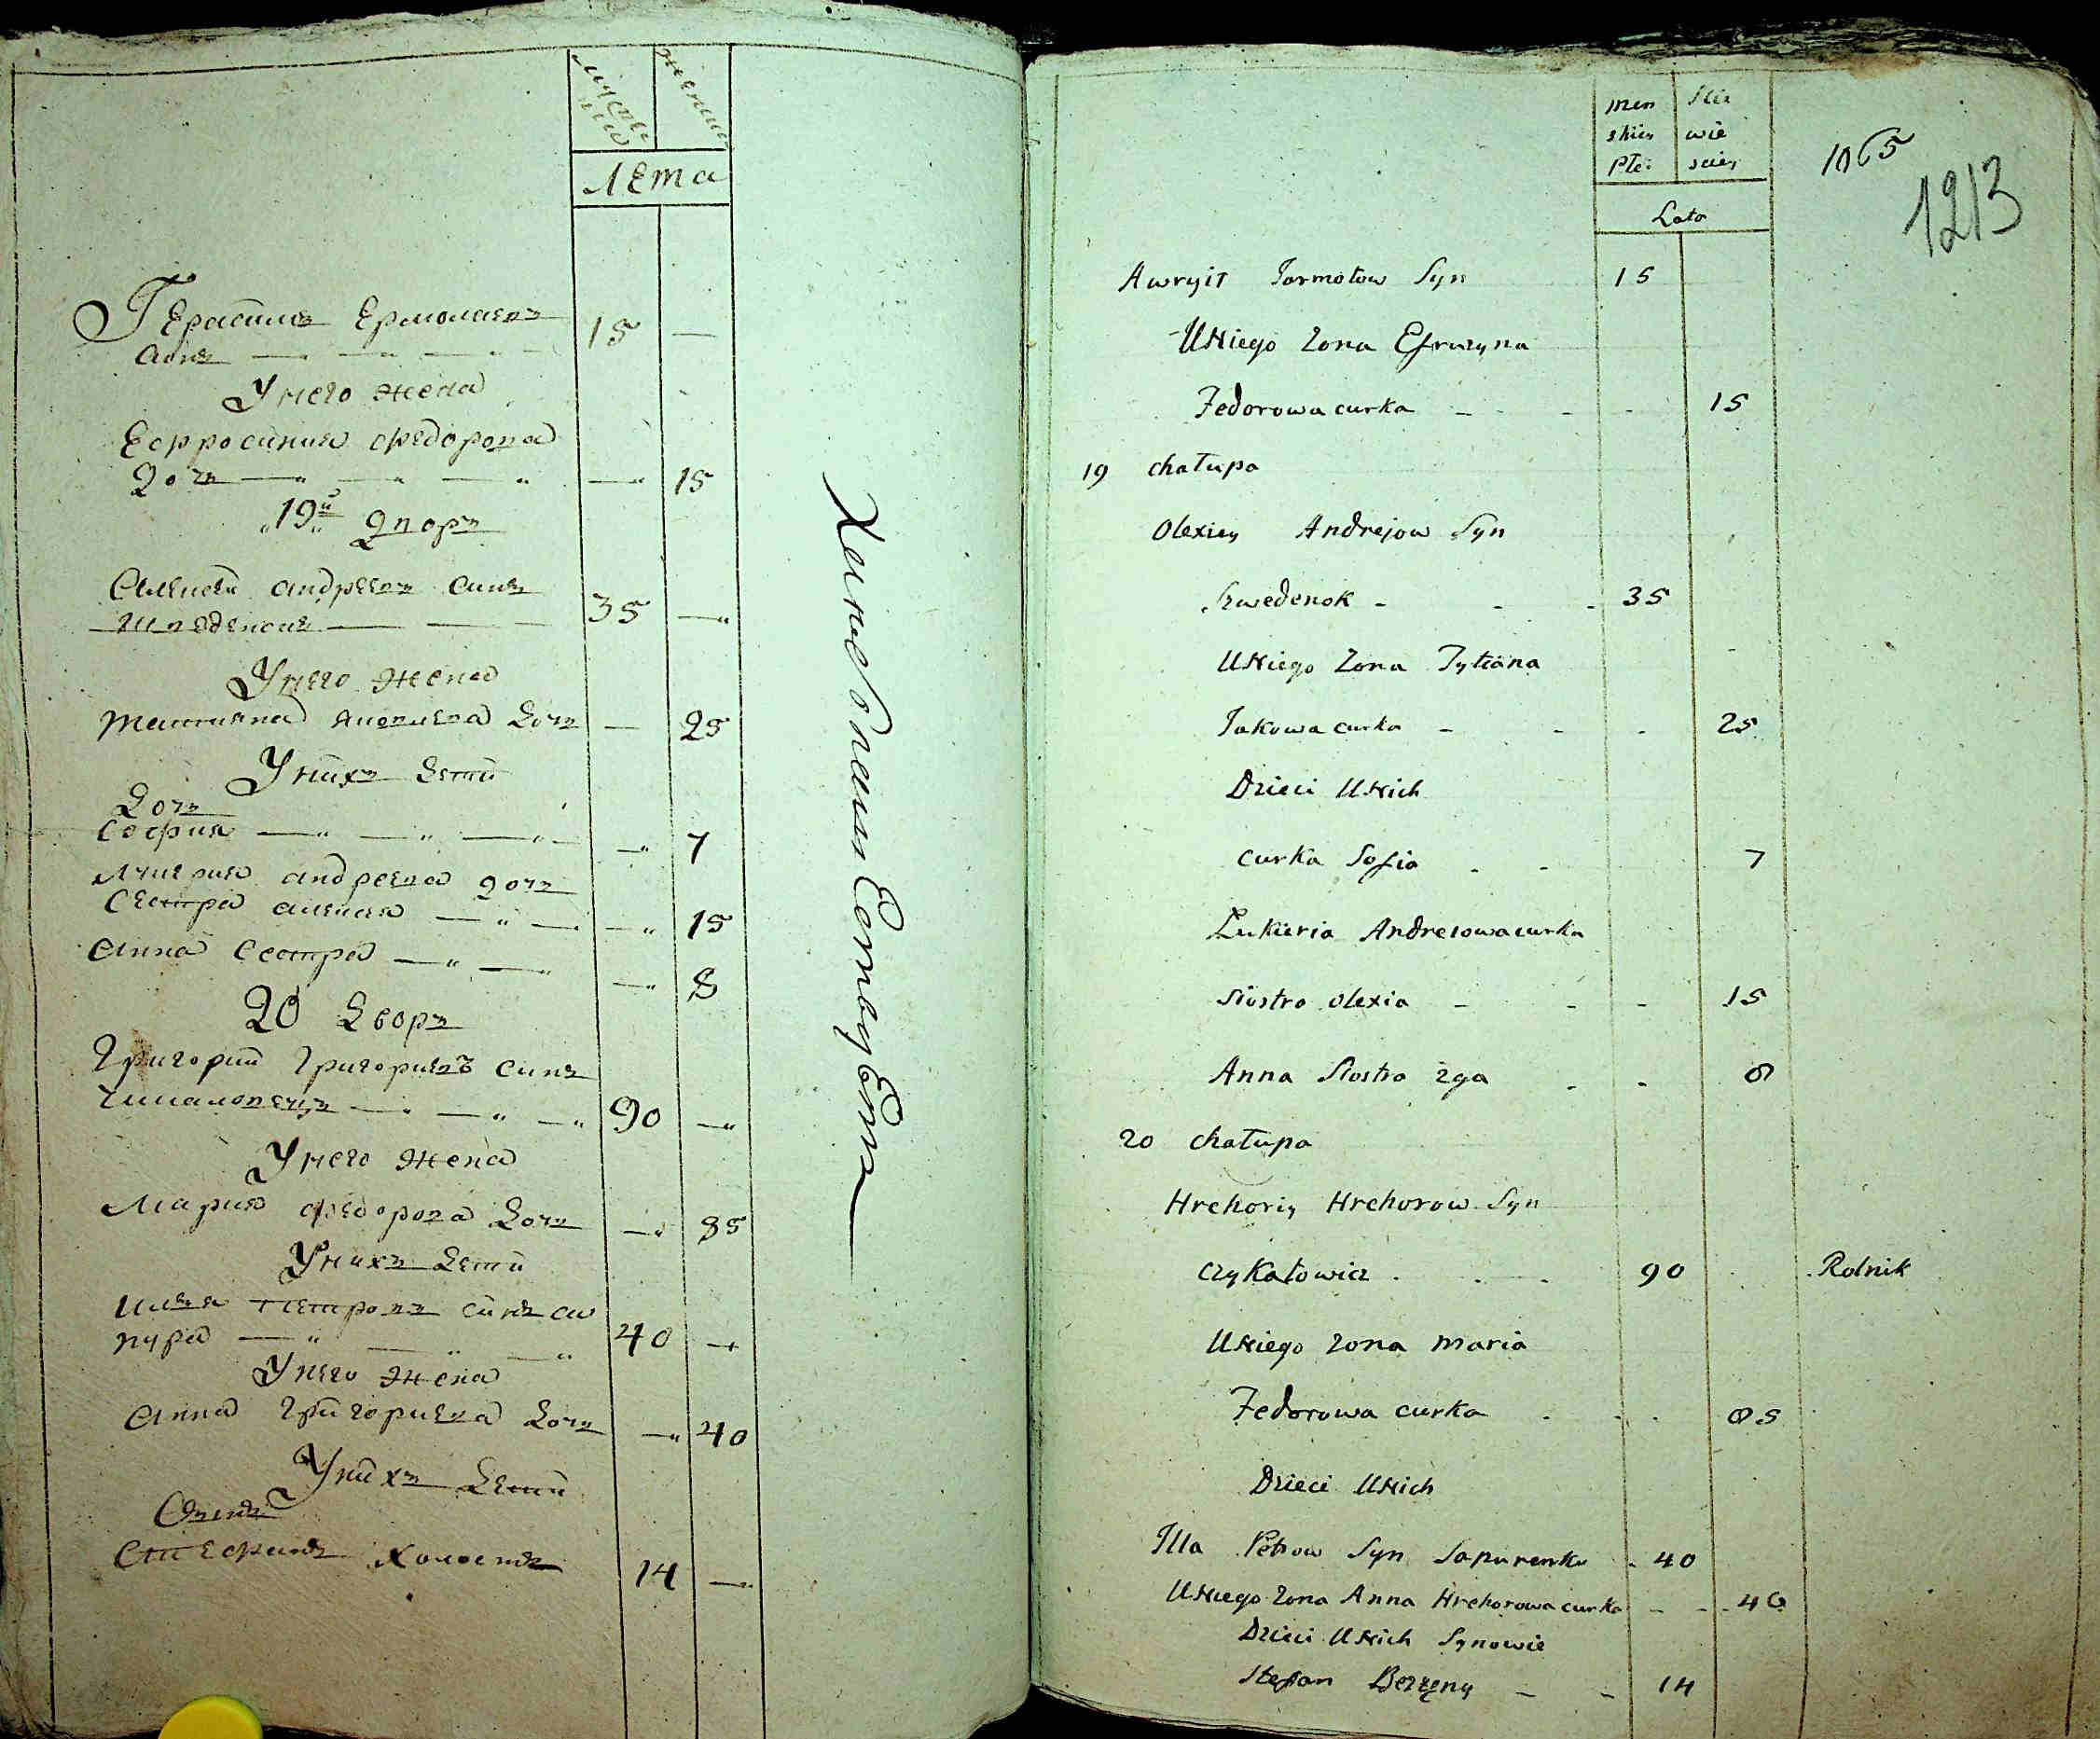 Лета
Герасимъ Ермолаевъ
синъ
15
У него жена
Ефросиния Федорова
дочъ
15
19й дворъ
Алексей Андреевъ синъ
Шведенокъ
35
У него жена
Татияна дочъ
25
У нихъ дети
дочъ
София
7
Андреева дочъ
Сестра Алексея
15
Анна Сестра
8
20 дворъ
Григорий Григориевъ синъ
90
У него жена
Мария Федорова дочъ
85
У нихъ дети
Илия Петровъ синъ Са
пура
40
У него жена
Анна Григориева дочъ
40
У нихъ дети
Синъ
Стефанъ холостъ
14
men Bia
skiey wie
Płci sciey
Lata
1065
1213
Jarmołow Syn 15
U Niego Zona Efruzyna
Fedorowa curka 15
19 chałupa
Olexiey Andrejow Syn
Szwedenok 35
U Niego Zona Tytiana
Jakowa curka 25
Dzieci U Nich
curka Sofia 7
Łukieria Andreiowa curka
Siostra Olexia 15
Anna Siostra 2ga 8
20 chałupa
Hrehoriy Hrehorow Syn
Czykałowicz 90 Rolnik
U Niego Zona Maria
Fedorowa curka 85
Dzieci U Nich
Illa Petrow Syn Sapurenko 40
U Niego Zona Anna Hrehorowa curka 40
Dzieci U Nich Synowie
Stefan Bezżeny 14